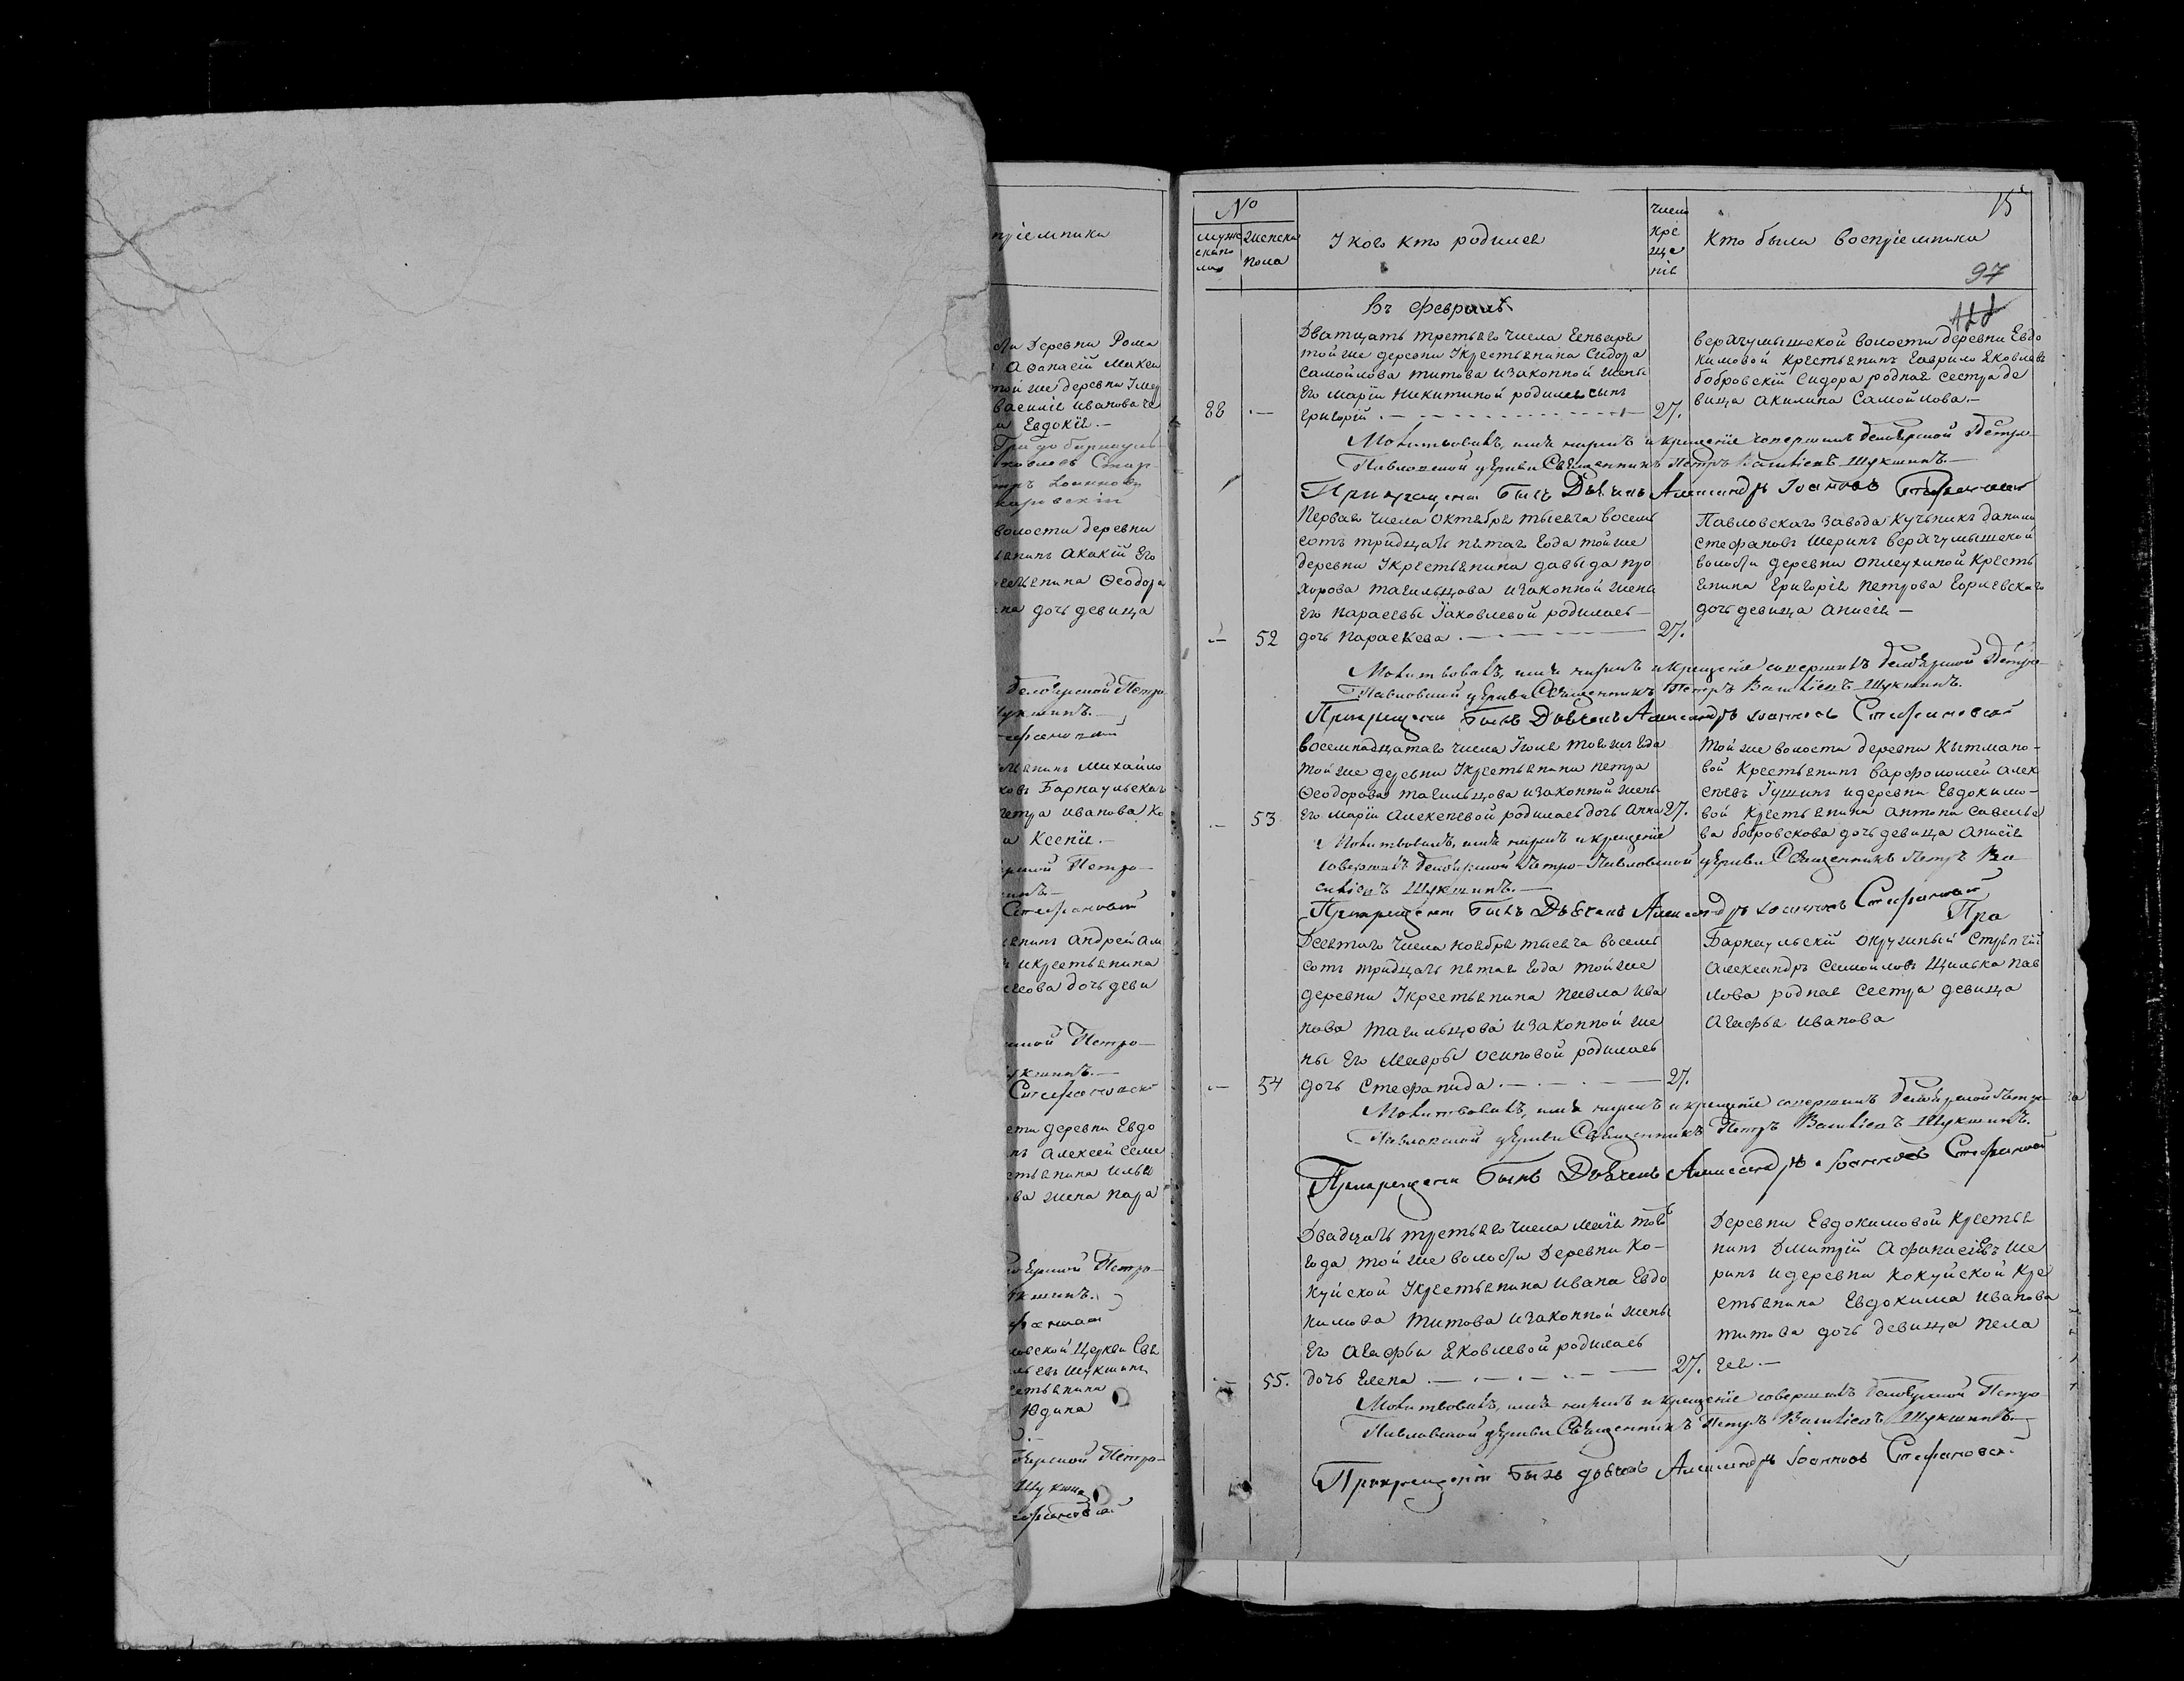 пріемники
ти деревни Рома
Аѳанасій Михеи
той же деревни
василія иванова
и Евдокія.—
волости деревни
янинъ акакій Его
Ѳеодора
на дочь девица
белоярской Петро
Шукшинъ.—
Стефановскій
янинъ Михайло
ковъ Барнаульскаго
петра иванова Ко
а Ксенія.—
Петро—
Стефановский
янинъ андрей
икрестьянина
дочь деви
Петро—
Шукшинъ.—
Стефановский
сти деревни Евдо
нъ Алексей Семе
стьянина Ильи
ва жена пара
белоярской Петро—
Шукшинъ.
ловской Церкви Свя
льевъ Шукшинъ
стьянина
Юдина
белоярской Петро—
Шукшинъ
Стефановский
№
15
мужескаго пола
женска пола
У кого кто родился
число крещенія
Кто были воспріемники
97
Въ февралѣ
Дватцать третьяго числа Генваря
той же деревни Украестьянина Сидора
Самойлова титова изаконной жены
его Маріи Никитиной родился сынъ
88 — Григорій. — 27.
верхчумышской волости деревни Евдо
кимовой крестьянинъ Гаврило Яковлевъ
бобровскій Сидора родная сестра де
вица акилина Самойлова.—
Молитвовалъ, имя нарекъ и крещеніе совершилъ белоярской Петро—
Павловской церкви Священникъ Петръ Васильевъ Шукшинъ.—
При крещеніи былъ Дьячекъ Александръ Іоанновъ Стефановский
Перваго числа октября тысяча восемь
сотъ тридцать пятаго года той же
деревни Украестьянина давыда про
хорова тагильцова изаконной жены
его параскевы Іаковлевой родилась
— 52 дочь параскева. — 27.
Павловскаго завода кучникъ данило
стефановъ Шеринъ верхчумышской
волости деревни оплеухиной кресть
янина григорія петрова Гориевскаго
дочь девица анисія —
Молитвовалъ, имя нарекъ и крещеніе совершилъ белоярской Петро—
Павловской церкви Священникъ Петръ Васильевъ Шукшинъ.
При крещеніи былъ Дьячекъ Александръ Іоанновъ Стефановской
восемнадцатаго числа Іюля того же года
той же деревни Украестьянина петра
Ѳеодорова тагильцова изаконной жены
— 53 его маріи алексеевой родилась дочь анна 27.
той же волости деревни Кытмано-
вой крестьянинъ варфоломей алек
сеевъ Гушинъ и деревни Евдокимо-
вой крестьянина антона савелье
ва бобровскова дочь девица анисія
Молитвовалъ, имя нарекъ и крещеніе
совершилъ белоярской Петро-Павловской церкви Священникъ Петръ Ва
сильевъ Шукшинъ.—
При крещеніи былъ Дьячекъ Александръ Іоанновъ Стефановский
Десятаго числа ноября тысяча восемь
сотъ тридцать пятаго года той же
деревни Украестьянина павла ива
нова тагильцова изаконной же
ны его мавры осиповой родилась
— 54 дочь Стефанида. — 27.
Барнаульскій окружный стряпчій
александръ самойловъ Щилька пав
лова родная сестра девица
агафья иванова
Молитвовалъ, имя нарекъ и крещеніе совершилъ белоярской Петро—
Павловской церкви Священникъ Петръ Васильевъ Шукшинъ.
При крещеніи былъ Дьячекъ Александръ Іоанновъ Стефановской
Двадцать третьяго числа маія того
года той же волости деревни Ко-
куйской Украестьянина ивана Евдо
кимова титова изаконной жены
его агафьи Яковлевой родилась
— 55. дочь Елена — 27.
деревни Евдокимовой крестья
нинъ дмитрій афанасіевъ Ше
ринъ и деревни кокуйской кре
стьянина Евдокима иванова
титова дочь девица пела
гея.—
Молитвовалъ, имя нарекъ и крещеніе совершилъ белоярской Петро
Павловской церкви Священникъ Петръ Васильевъ Шукшинъ.—
При крещеніи былъ дьячекъ Александръ Іоанновъ Стефановской